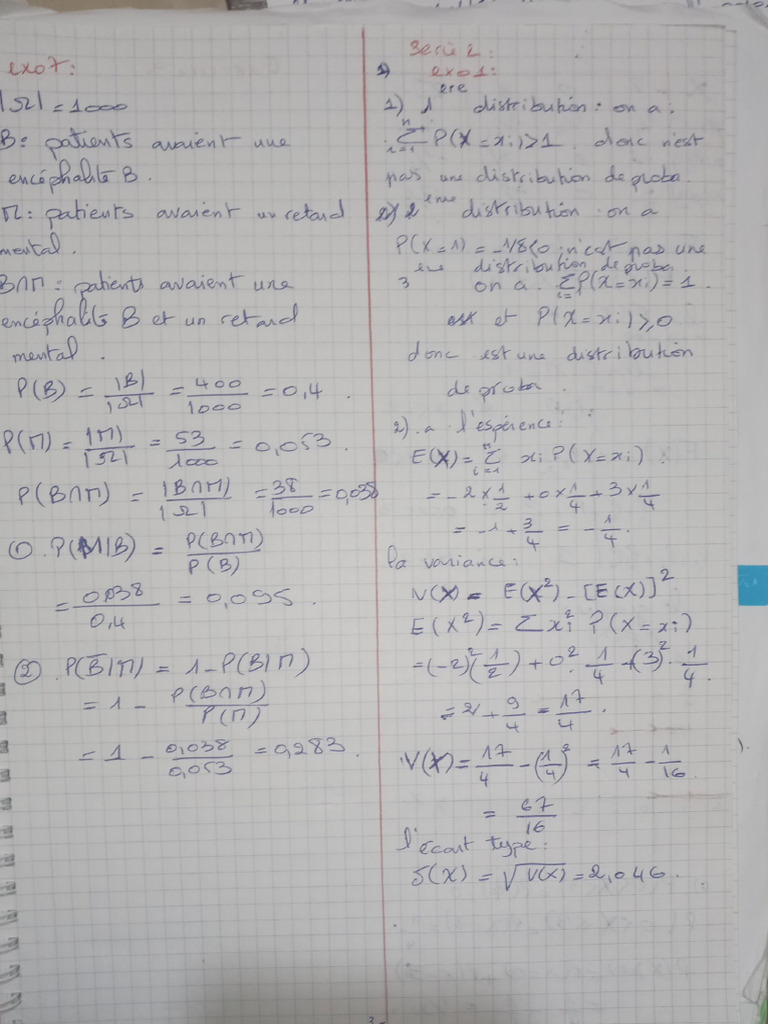 exo7:
|Ω| = 1000
B: patients avaient une
encéphalite B.
M: patients avaient un retard
mental.
B∩M: patients avaient une
encéphalite B et un retard
mental.
P(B) = |B|/|Ω| = 400/1000 = 0,4.
P(M) = |M|/|Ω| = 53/1000 = 0,053.
P(B∩M) = |B∩M|/|Ω| = 38/1000 = 0,038
① P(M|B) = P(B∩M)/P(B)
= 0,038/0,4 = 0,095.
② P(B̅|M) = 1 - P(B|M)
= 1 - P(B∩M)/P(M)
= 1 - 0,038/0,053 = 0,283.
Serie 2:
1) exo1:
1) 1ere distribution: on a:
∑ⁿᵢ₌₁ P(X = xi) > 1. donc n'est
pas une distribution de proba.
2) 2eme distribution on a
P(X = 1) = -1/8 < 0 n'est pas une
distribution de proba.
3 eme on a ∑P(X = xi) = 1.
et P(X = xi) ≥ 0
donc est une distribution
de proba.
2) a l'espérence:
E(X) = ∑ⁿᵢ₌₁ xi P(X = xi)
= -2 × 1/2 + 0 × 1/4 + 3 × 1/4
= -1 + 3/4 = -1/4.
la variance:
V(X) = E(X²) - [E(X)]²
E(X²) = ∑ xi² P(X = xi)
= (-2)² (1/2) + 0² · 1/4 + (3)² · 1/4.
= 2 + 9/4 = 17/4.
V(X) = 17/4 - (1/4)² = 17/4 - 1/16
= 67/16
l'écart type:
δ(X) = √V(X) = 2,046.